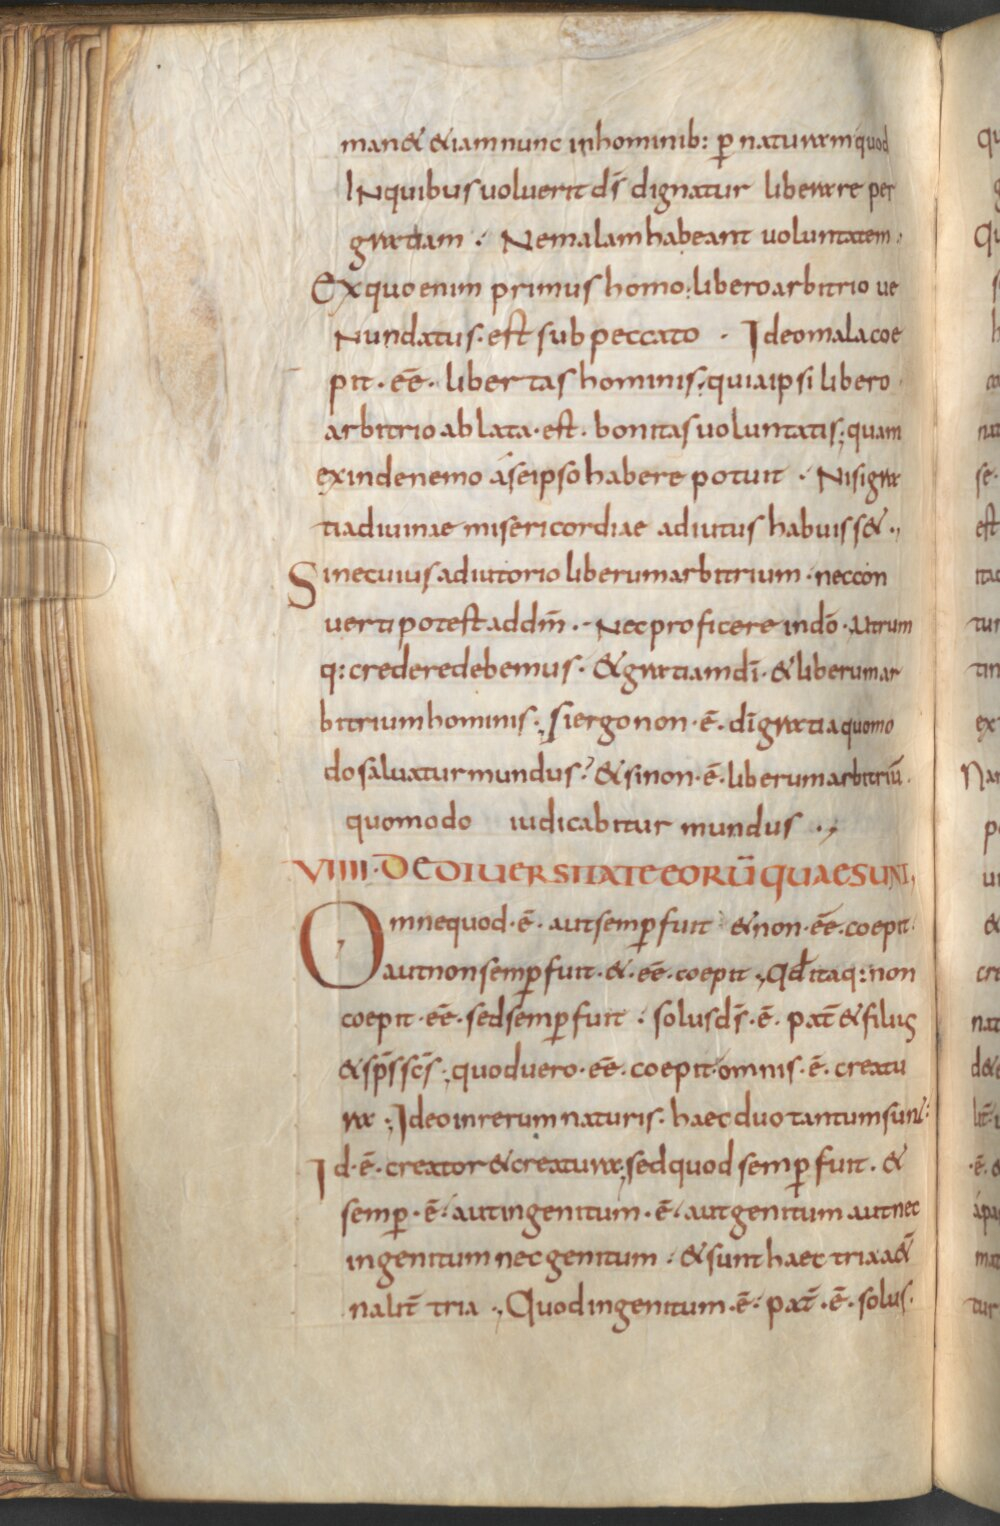 man& &iam nunc in hominib: p̱ naturam quod
In quibus uoluerit dr̄s dignatur liberare per
gratiam . Ne malam habeant uoluntatem .
Ex quo enim primus homo . libero arbitrio ue
Nundatus . est sub peccato . Ideo mala coe
pit . eē . libertas hominis ; quia ipsi libero
arbitrio ablata . est . bonitas uoluntatis ; quam
exinde nemo a seipso habere potuit . Nisi gra
tia diuinae misericordiae adiutus habuiss& .,
Sine cuius adiutorio liberum arbitrium . nec con
uerti potest ad dm̄ . Nec proficere in dō . Utrum
q: credere debemus . & gratiam dī . & liberum ar
bitrium hominis ; si ergo non . ē . dī gratia quomo
do saluatur mundus ? & si non . ē . liberum arbitriū .
quomodo iudicabitur mundus .,
VIIII . DE DIUERSITATE EORŪ QUAE SUNT,
Omne quod . ē . aut semp̱ fuit & non . eē . coepit .
aut non semp̱ fuit . & . eē . coepit ; Qd itaq: non
coepit . eē . sed semp̱ fuit . solus ds̄ . ē . pat̄ & filius
& sp̄s sc̄s ; quod uero . eē . coepit . omnis . ē . creatu
ra ; Ideo in rerum naturis . haec duo tantum sunt .
Id . ē . creator & creatura ; sed quod semp̱ fuit . &
semp̱ . ē . aut ingenitum . ē . aut genitum aut nec
ingenitum nec genitum . & sunt haec tria a&
nalit̄ tria ., Quod ingenitum . ē . pat̄ . ē . solus .